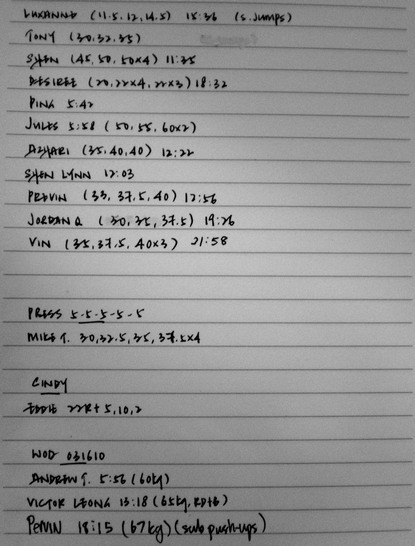 LUXANNE (11.5, 12, 14.5) 15:36 (S. Jumps)
TONY (30, 32, 35)
SHEN (45, 50, 50x4) 11:35
DESIREE (20, 22x4, 22x3) 18:32
PINK 5:42
JULES 5:58 (50, 55, 60x2)
AZHARI (35, 40, 40) 12:22
SHEN LYNN 12:03
PREVIN (33, 37.5, 40) 12:56
JORDAN Q (30, 35, 37.5) 19:26
VIN (35, 37.5, 40x3) 21:58
PRESS 5-5-5-5-5
MIKE T. 30, 32.5, 35, 37.5x4
CINDY
EDDIE 22R + 5, 10, 2
WOD 031610
ANDREW T. 5:56 (60kg)
VICTOR LEONG 13:18 (65kg, RDTB)
PERVIN 18:15 (67kg) (sub push-ups)